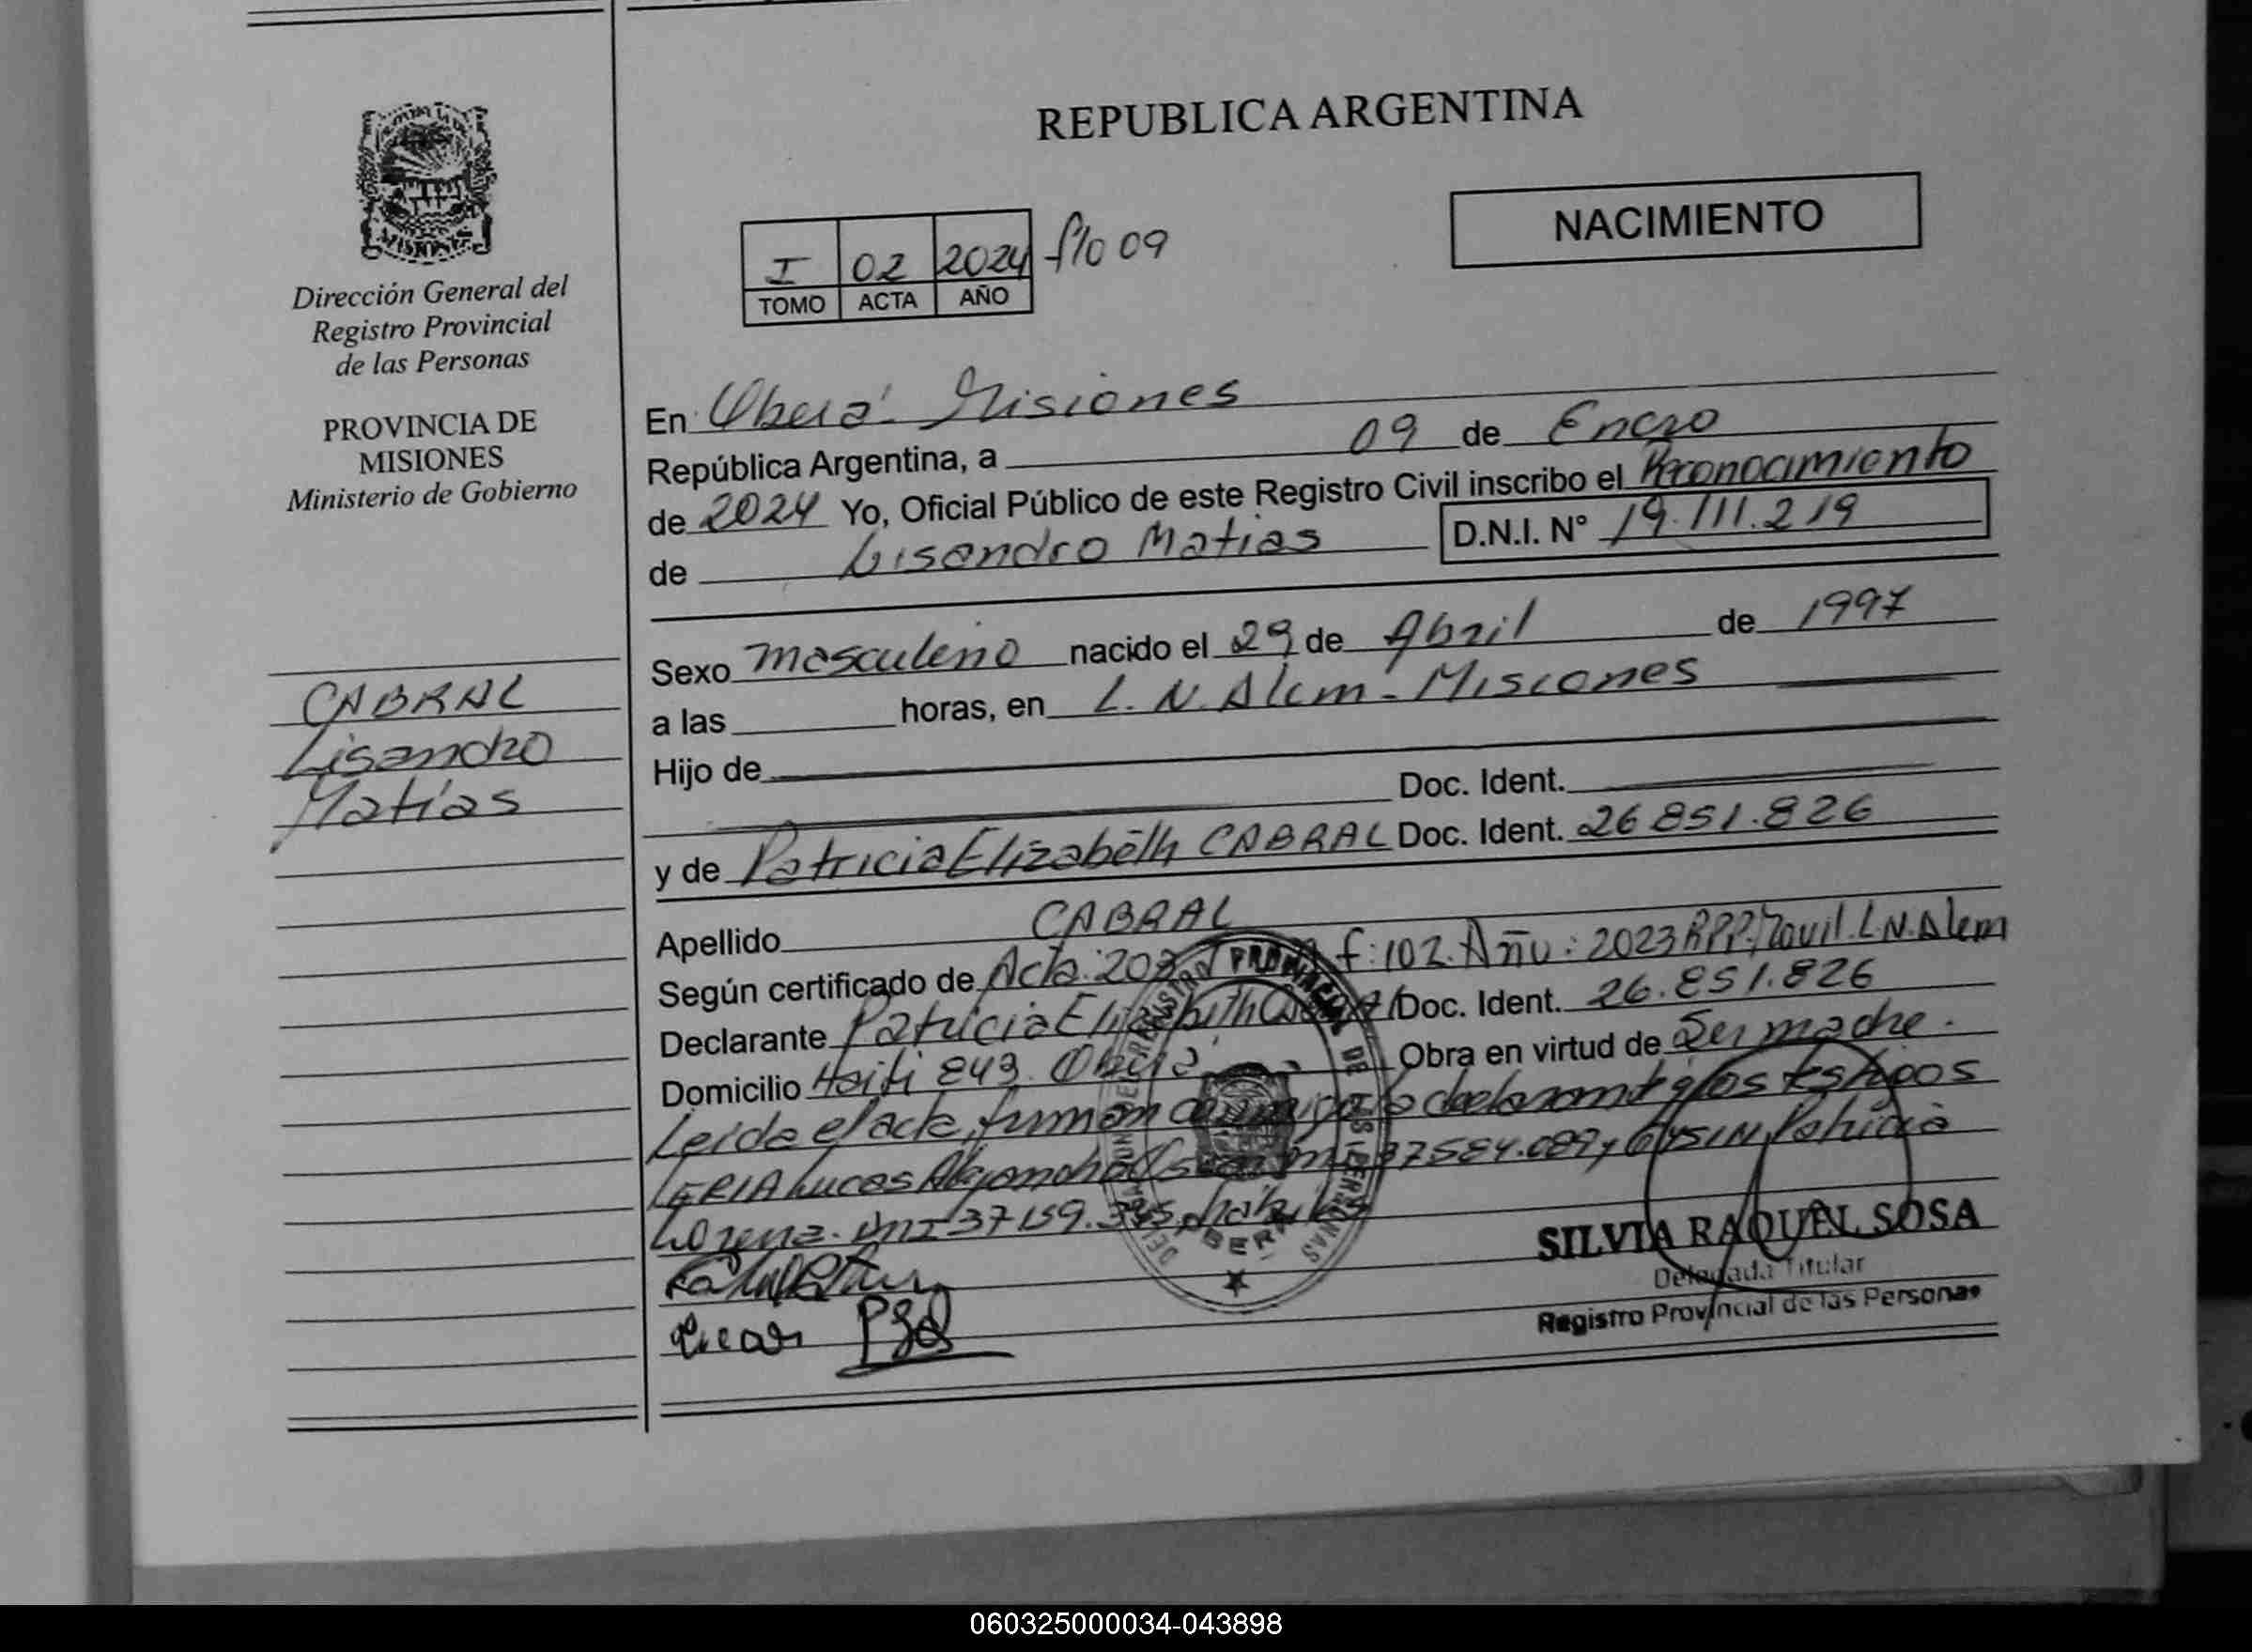 REPUBLICA ARGENTINA
NACIMIENTO
I 02 2024 flo 09
TOMO ACTA AÑO
Dirección General del
Registro Provincial
de las Personas
PROVINCIA DE
MISIONES
Ministerio de Gobierno
CABRAL
Lisandro
Matías
En Oberá - Misiones
República Argentina, a 09 de Enero
de 2024 Yo, Oficial Público de este Registro Civil inscribo el Reconocimiento
de Lisandro Matias D.N.I. N° 19.111.219
Sexo masculino nacido el 29 de Abril de 1997
a las horas, en L. N. Alem - Misiones
Hijo de
Doc. Ident.
y de Patricia Elizabeth CABRAL Doc. Ident. 26 851.826
Apellido CABRAL
Según certificado de Acta: f: 102. Año: 2023 RPP. L.N. Alem
Declarante Patricia Elizabeth Doc. Ident. 26.851.826
Domicilio Haiti 843. Oberá Obra en virtud de Ser madre.
Leida el acta, firman conmigo la declarante y los testigos
Lucas Alejandro 37584.089 y Patricia
Lorena. DNI 37159.
Lucas
SILVIA RAQUEL SOSA
Delegada Titular
Registro Provincial de las Personas
060325000034-043898